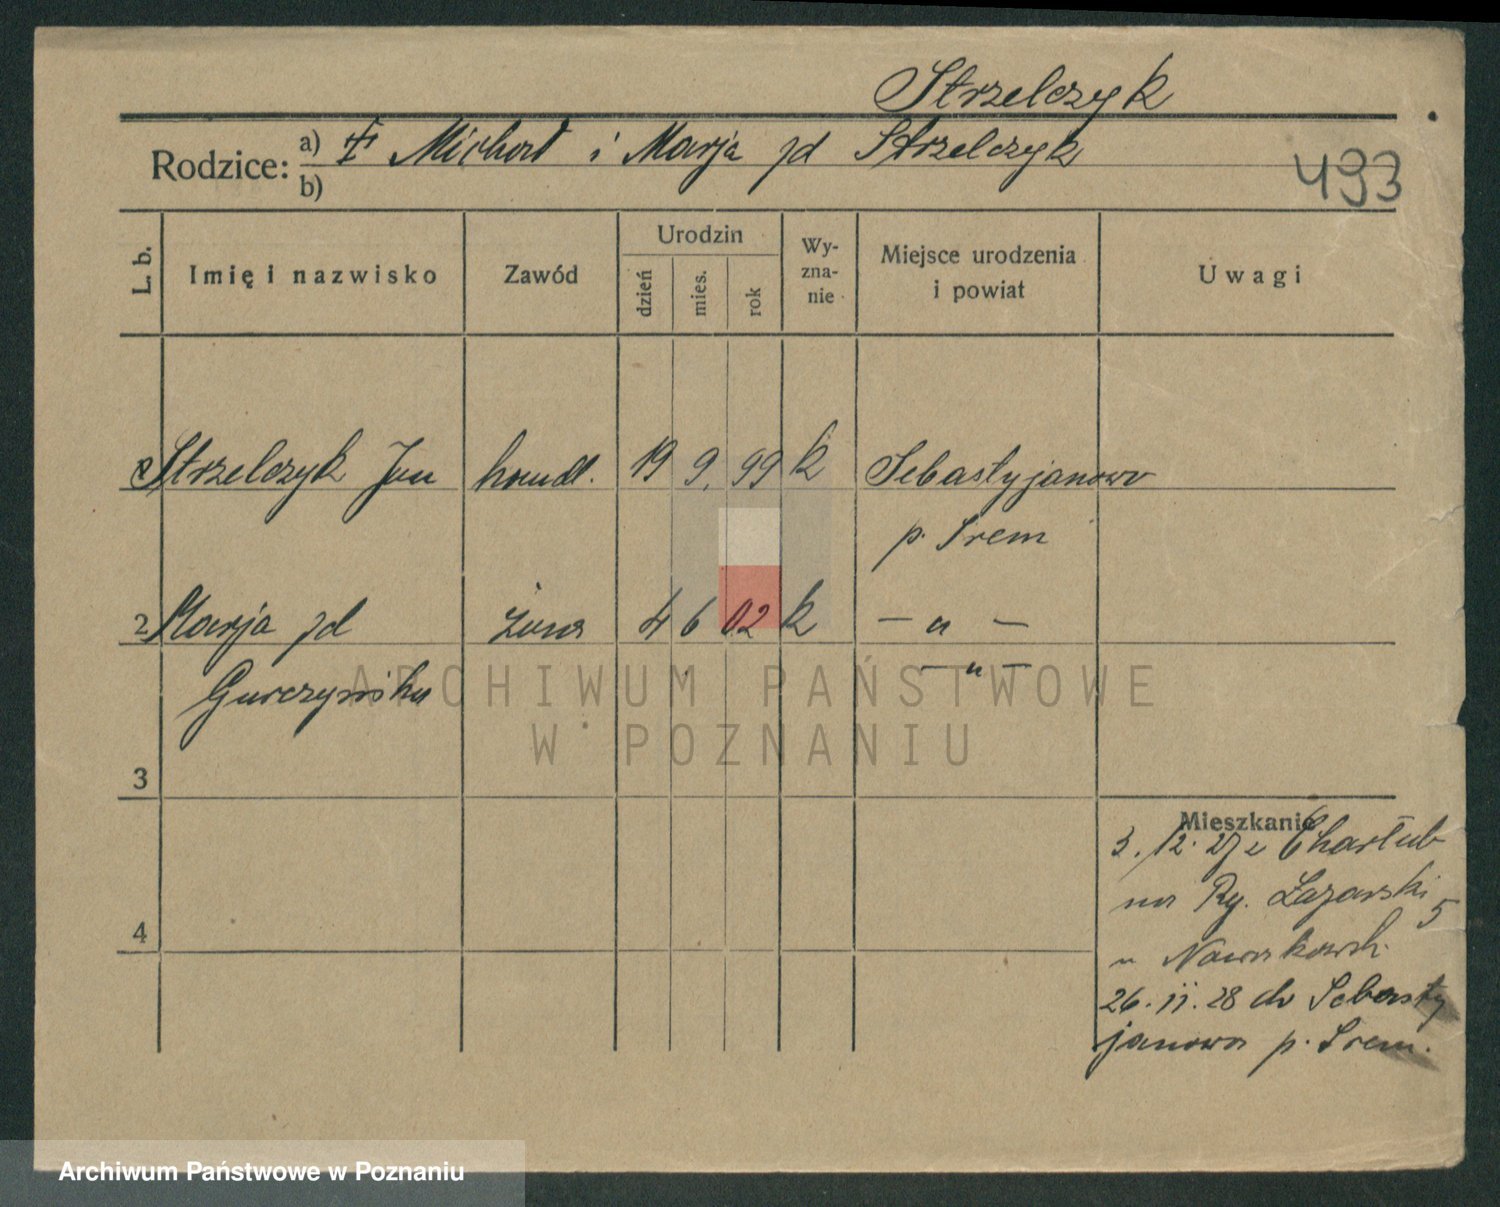 Strzelczyk
Rodzice: a) Michał i Marja zd Strzelczyk
b)
493
L. b.
Imię i nazwisko
Zawód
Urodzin
dzień
mies.
rok
Wy-
zna-
nie
Miejsce urodzenia
i powiat
Uwagi
Strzelczyk Jan handl. 19 9. 99 k Sebastyjanowo
p. Srem
2 Marja zd żona 4 6 02 k — „ —
— „ —
3
Mieszkanie
3. 12. 27 z
na Ry. Łazarski 5
u
4
26. 11. 28 do Sebasty
janowa p. Srem.
ARCHIWUM PAŃSTWOWE
W POZNANIU
Archiwum Państwowe w Poznaniu